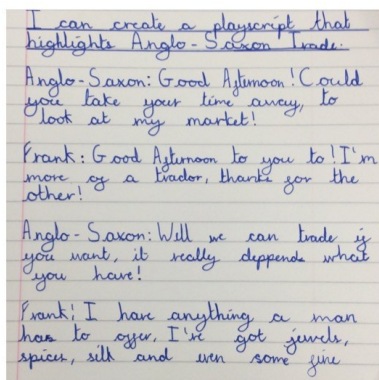 I can create a playscript that
highlights Anglo-Saxon Trade.
Anglo-Saxon: Good Afternoon! Could
you take your time away, to
look at my market!
Frank: Good Afternoon to you to! I'm
more of a trador, thanks for the
other!
Anglo-Saxon: Well we can trade if
you want, it really deppends what
you have!
Frank: I have anything a man
has to offer, I've got jewels,
spices, silk and even some fine